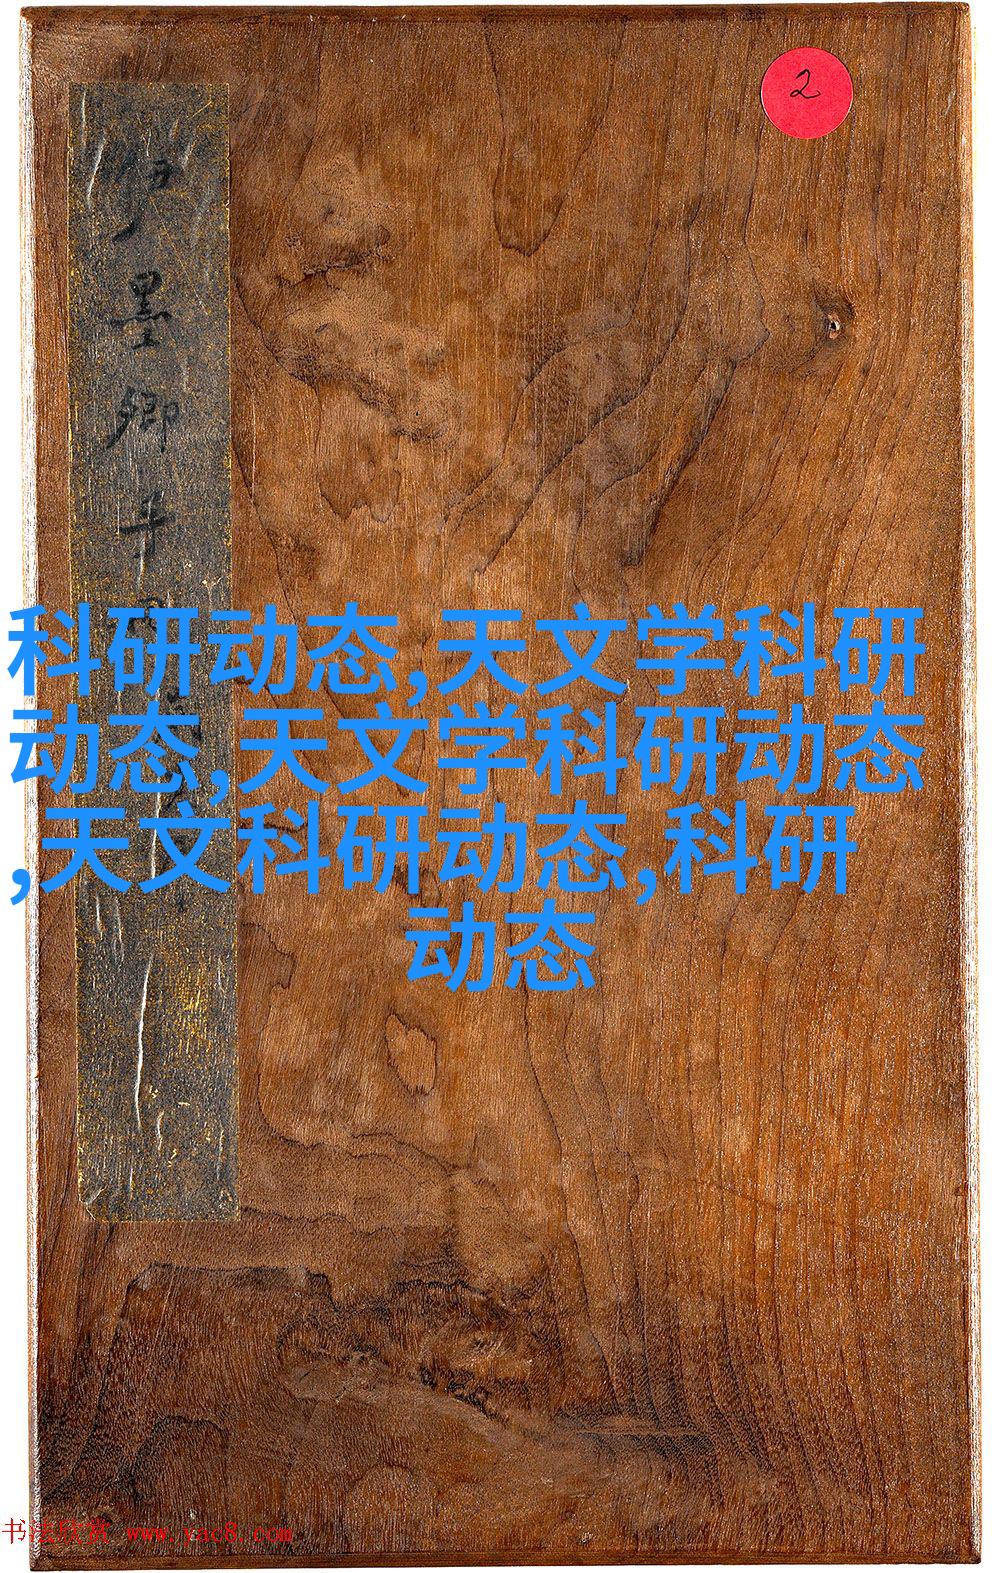 2
墨卿
科研动态,天文学科研
动态,天文学科研动态
,天文科研动态,科研
动态
书法欣赏 www.yac8.com